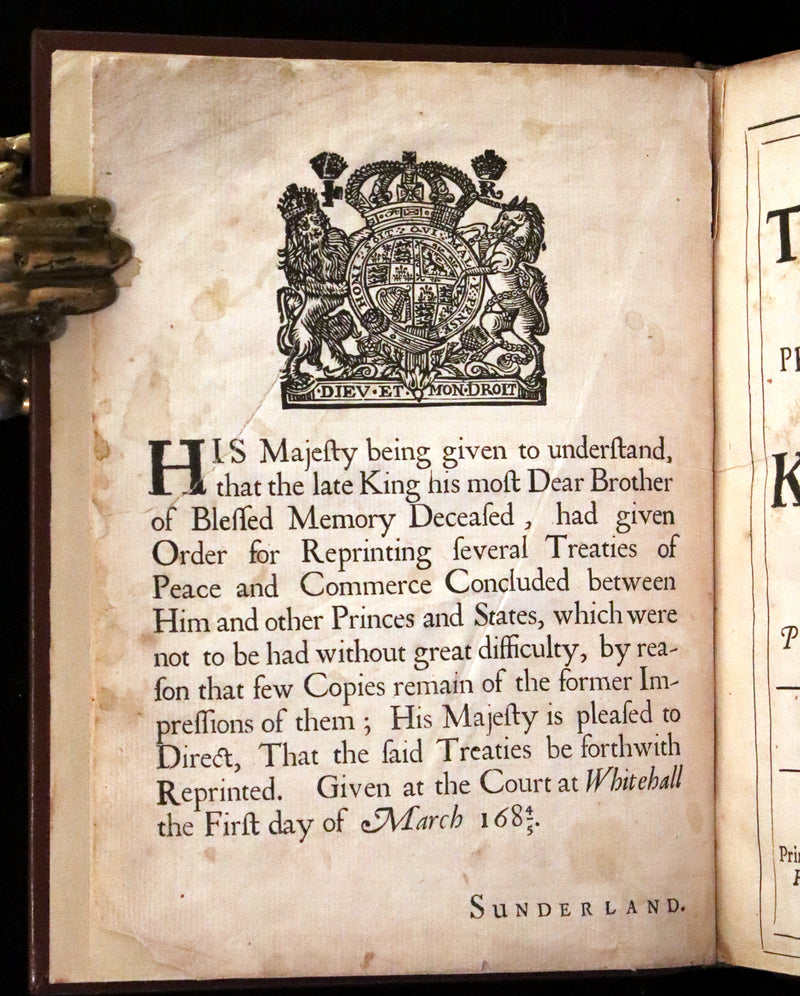 R
HONI · SOIT · QVI · MAL · Y · PENSE
· DIEV · ET · MON · DROIT
HIS Majeſty being given to underſtand,
that the late King his moſt Dear Brother
of Bleſſed Memory Deceaſed , had given
Order for Reprinting ſeveral Treaties of
Peace and Commerce Concluded between
Him and other Princes and States, which were
not to be had without great difficulty, by rea-
ſon that few Copies remain of the former Im-
preſſions of them ; His Majeſty is pleaſed to
Direct, That the ſaid Treaties be forthwith
Reprinted. Given at the Court at Whitehall
the Firſt day of March 168⅘.
SUNDERLAND.
T
K
P
Prin